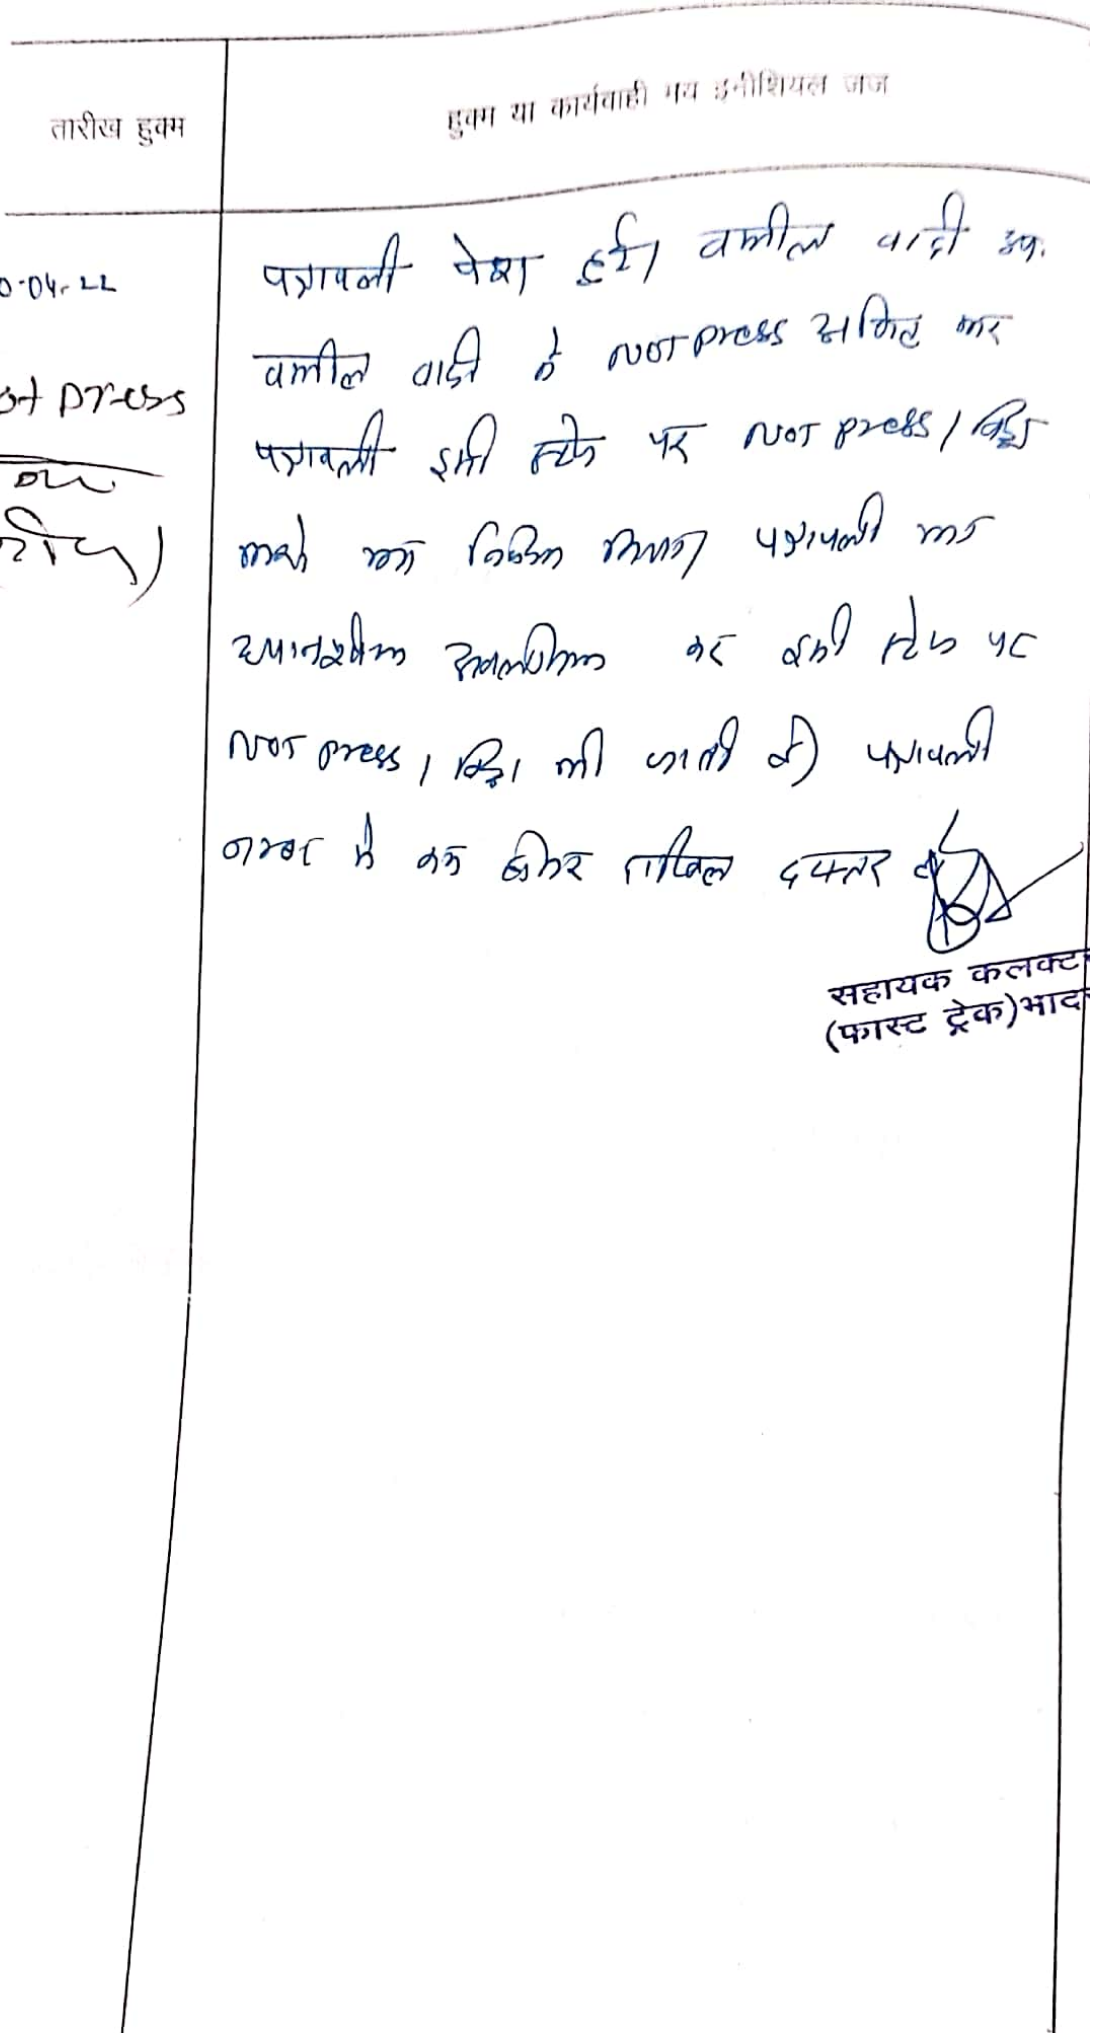 तारीख हुक्म
हुक्म या कार्यवाही मय इनीशियल जज
0-04-22
पत्रावली पेश हुई। वकील वादी उप.
वकील वादी ने NOT press अंकित कर
ot press
पत्रावली इसी स्टेज पर NOT press / विड्रा
पत्रावली का
ध्यानपूर्वक अवलोकन कर इसी स्टेज पर
NOT press / विड्रा की जाती है। पत्रावली
नम्बर से कम होकर दाखिल दफ्तर
सहायक कलक्ट
(फास्ट ट्रेक)भाद